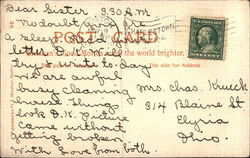 Dear Sister 8.30 A.M.
No doubt
a sleep
POST CARD
the world brighter.
letter D.K. will
try & write to-day
This side for Address
we are awful
busy cleaning
Mrs. Chas. Krueck
house things
314 Blaine St
look O.K. Picture
Elyria
came without
Ohio.
getting broken
With Love from both.